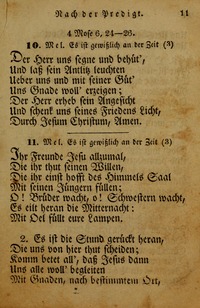 Nach der Predigt. 11
4 Mose 6, 24—26.
10. Mel. Es ist gewißlich an der Zeit (3)
Der Herr uns segne und behüt',
Und laß sein Antlitz leuchten
Ueber uns und mit seiner Güt'
Uns Gnade woll' erzeigen;
Der Herr erheb sein Angesicht
Und schenk uns seines Friedens Licht,
Durch Jesum Christum, Amen.
11. Mel. Es ist gewißlich an der Zeit (3)
Ihr Freunde Jesu allzumal,
Die ihr thut seinen Willen,
Die ihr einst hofft des Himmels Saal
Mit seinen Jüngern füllen;
O! Brüder wacht, o! Schwestern wacht,
Es eilt heran die Mitternacht:
Mit Oel füllt eure Lampen.
2. Es ist die Stund gerückt heran,
Die uns von hier thut scheiden;
Komm betet all', daß Jesus dann
Uns alle woll' begleiten
Mit Gnaden, nach bestimmtem Ort,